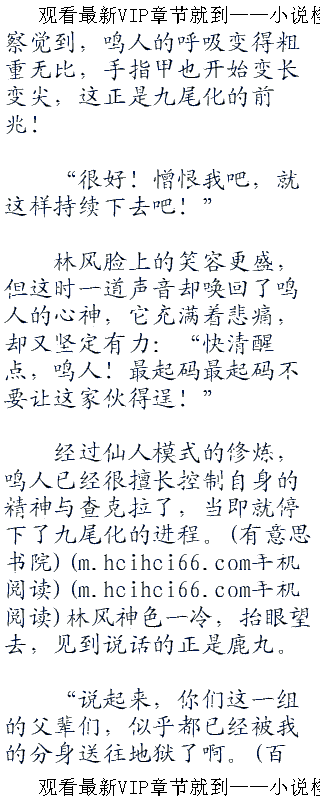 观看最新VIP章节就到一一小说检
察觉到，鸣人的呼吸变得粗
重无比，手指甲也开始变长
变尖，这正是九尾化的前
兆！
“很好！憎恨我吧，就
这样持续下去吧！”
林风脸上的笑容更盛，
但这时一道声音却唤回了鸣
人的心神，它充满着悲痛，
却又坚定有力：“快清醒
点，鸣人！最起码最起码不
要让这家伙得逞！”
经过仙人模式的修炼，
鸣人已经很擅长控制自身的
精神与查克拉了，当即就停
下了九尾化的进程。(有意思
书院)(m.hcihci66.com手机
阅读)(m.hcihci66.com手机
阅读)林风神色一冷，抬眼望
去，见到说话的正是鹿丸。
“说起来，你们这一组
的父辈们，似乎都已经被我
的分身送往地狱了啊。(百
观看最新VIP章节就到一一小说检